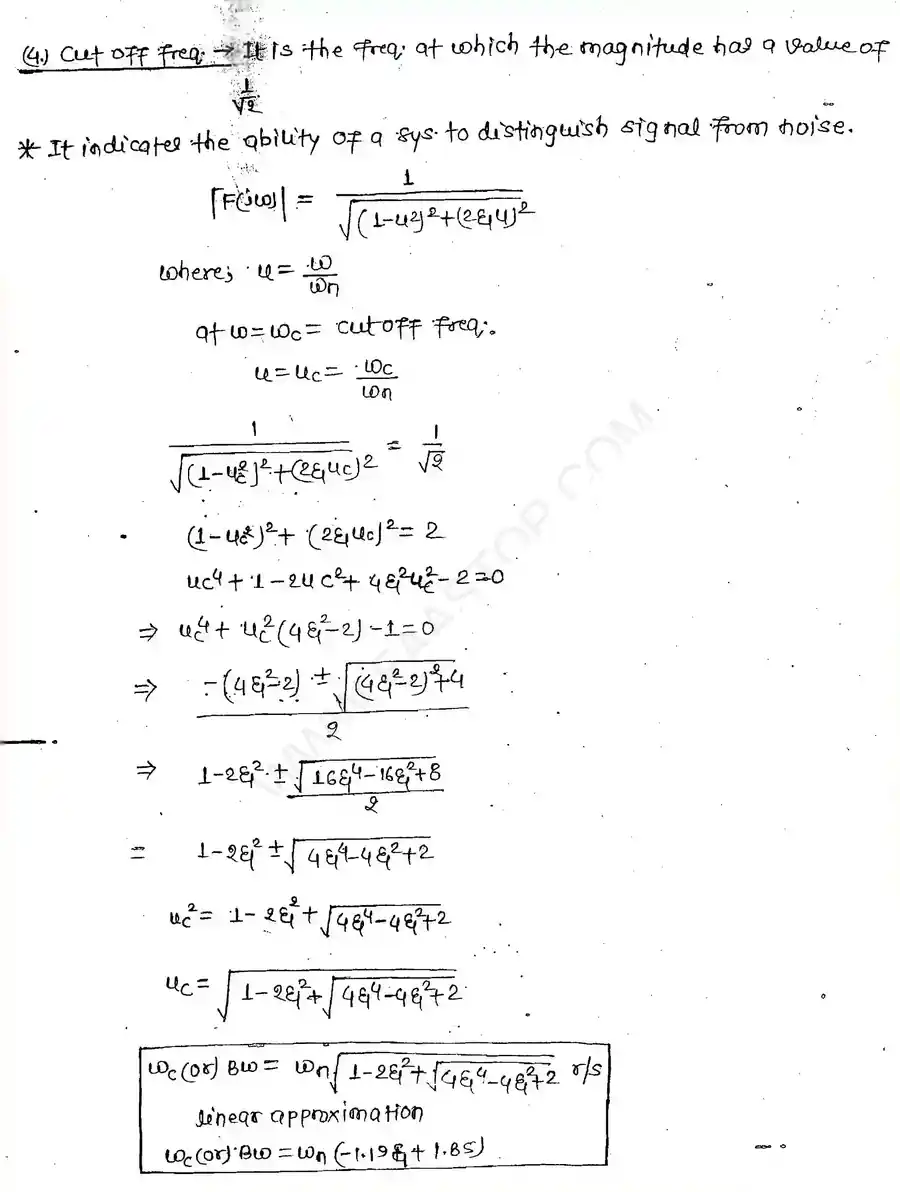 (4.) Cut off freq. → It is the freq. at which the magnitude has a value of
1/√2.
* It indicates the ability of a sys. to distinguish signal from noise.
|F(jω)| = 1/√((1-u²)²+(2ξu)²)
where; u = ω/ωn
at ω=ωc= cut off freq.
u=uc= ωc/ωn
1/√((1-uc²)²+(2ξuc)²) = 1/√2
(1-uc²)²+ (2ξuc)²= 2
uc⁴+1-2uc²+ 4ξ²uc²-2=0
⇒ uc⁴+ uc²(4ξ²-2)-1=0
⇒ (-(4ξ²-2) ± √((4ξ²-2)²+4))/2
⇒ 1-2ξ² ± √(16ξ⁴-16ξ²+8)/2
= 1-2ξ² ± √(4ξ⁴-4ξ²+2)
uc²= 1-2ξ²+√(4ξ⁴-4ξ²+2)
uc= √(1-2ξ²+√(4ξ⁴-4ξ²+2))
ωc(or) BW= ωn√(1-2ξ²+√(4ξ⁴-4ξ²+2)) r/s
linear approximation
ωc(or) BW=ωn(-1.19ξ+1.85)